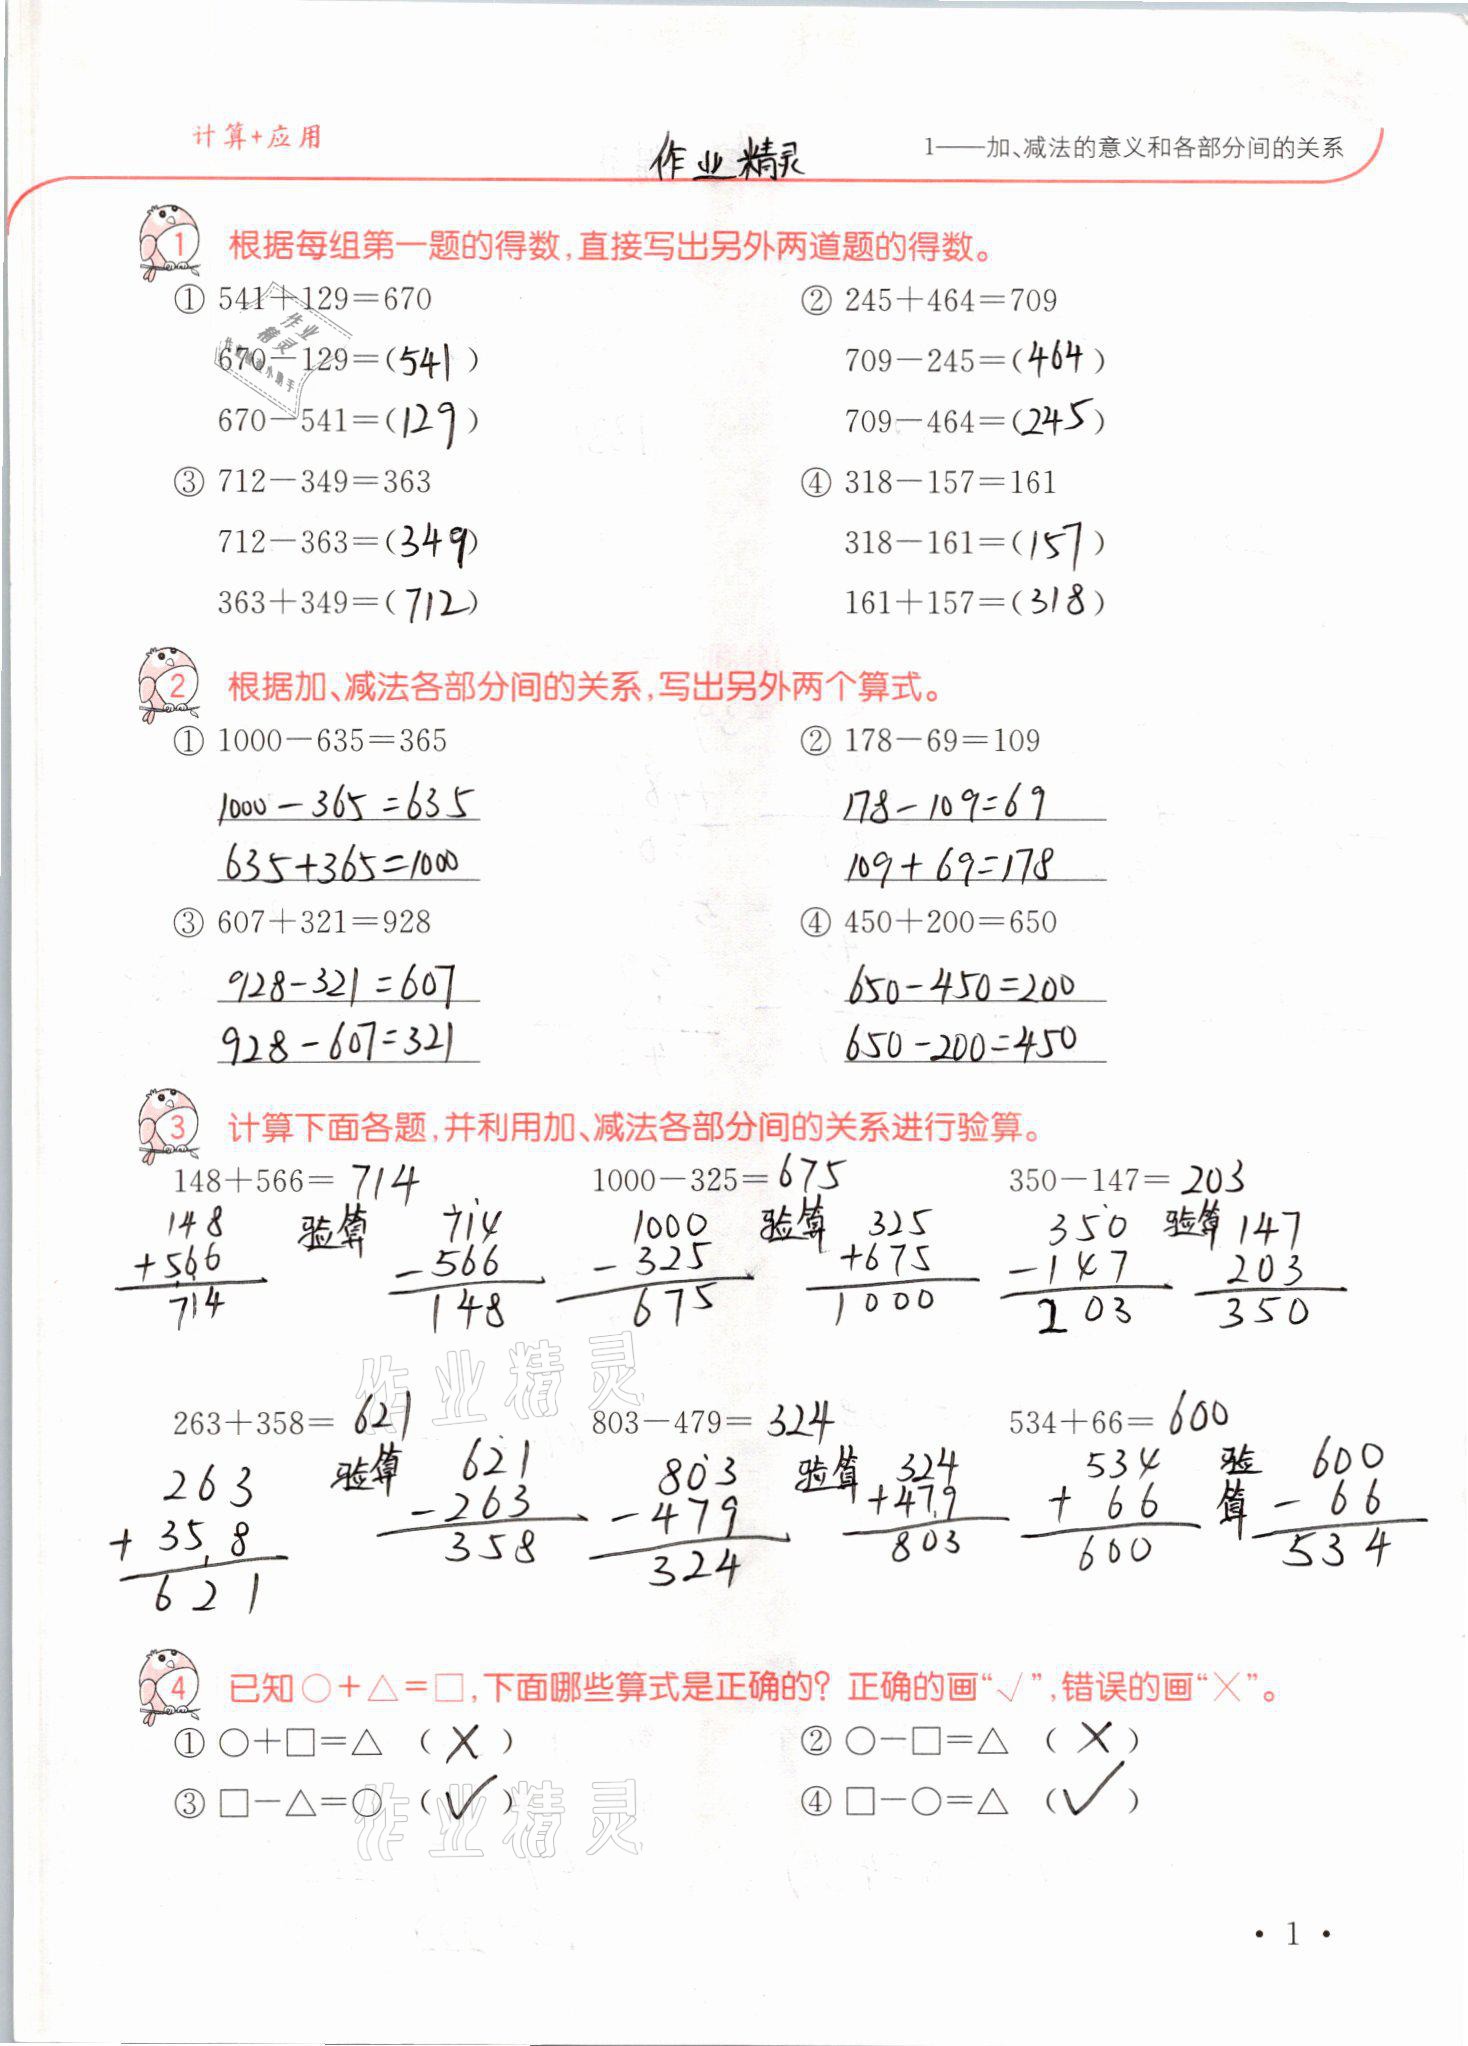 计算+应用
作业精灵
1——加、减法的意义和各部分间的关系
1 根据每组第一题的得数,直接写出另外两道题的得数。
① 541+129=670 ② 245+464=709
670-129=(541) 709-245=(464)
670-541=(129) 709-464=(245)
③ 712-349=363 ④ 318-157=161
712-363=(349) 318-161=(157)
363+349=(712) 161+157=(318)
2 根据加、减法各部分间的关系,写出另外两个算式。
① 1000-635=365 ② 178-69=109
1000-365=635 178-109=69
635+365=1000 109+69=178
③ 607+321=928 ④ 450+200=650
928-321=607 650-450=200
928-607=321 650-200=450
3 计算下面各题,并利用加、减法各部分间的关系进行验算。
148+566=714 1000-325=675 350-147=203
148 验算 714 1000 验算 325 350 验算 147
+566 -566 -325 +675 -147 203
714 148 675 1000 203 350
作业精灵
263+358=621 803-479=324 534+66=600
263 验算 621 803 验算 324 534 验算 600
+358 -263 -479 +479 +66 -66
621 358 324 803 600 534
4 已知○+△=□,下面哪些算式是正确的?正确的画“√”,错误的画“×”。
① ○+□=△ (×) ② ○-□=△ (×)
③ □-△=○ (√) ④ □-○=△ (√)
作业精灵
·1·